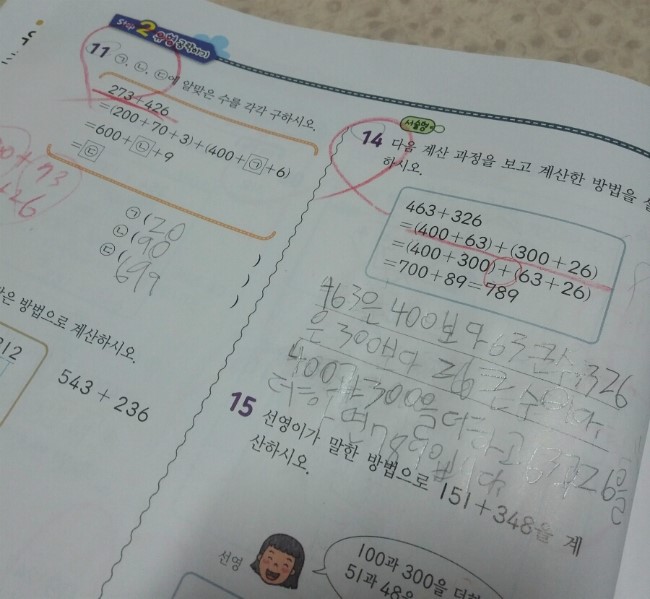 2
11 ㉠, ㉡, ㉢에 알맞은 수를 각각 구하시오.
273+426
=(200+70+3)+(400+㉠+6)
=600+㉡+9
=㉢
㉠ (20
㉡ (90
㉢ (699
)
)
)
73
+26
은 방법으로 계산하시오.
212
543 + 236
서술형
14 다음 계산 과정을 보고 계산한 방법을 설
하시오.
463+326
=(400+63)+(300+26)
=(400+300)+(63+26)
=700+89=789
463은 400보다 63 큰수, 326
은 300보다 26 큰 수이다.
400과 300을 더하고 63과 26을
더하면 789이
15 선영이가 말한 방법으로 151+348을 계
산하시오.
선영
100과 300을 더한
51과 48을